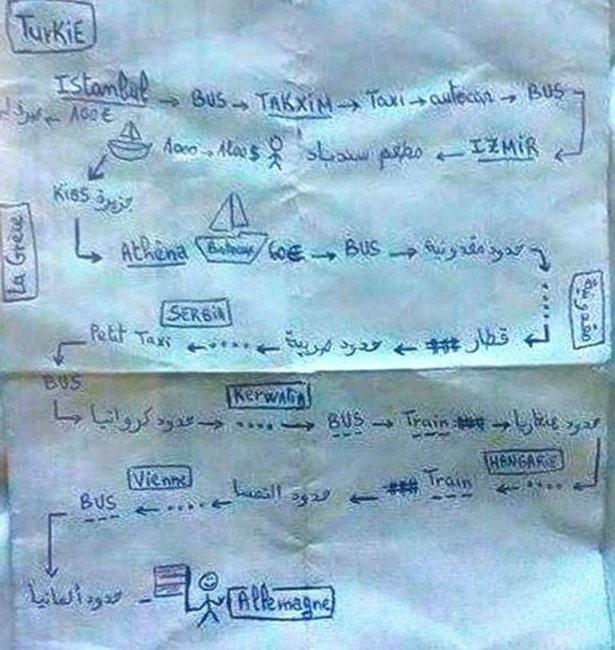 TurKiE
Istanbul → BUS → TAKXiM → Taxi → autocar → BUS
100€ ←
IZMiR ← مطعم سندباد 1000 → 1200$
KiOS جزيرة
La Grece
Athêna Bateau 60€ → BUS → حدود مقدونية
مقدونية
SERBiA
قطار ### ← حدود صربية ← .... ← Petit Taxi
BUS
KerwatiA
حدود كرواتيا → .... → BUS → Train ### → حدود هنغاريا
HANGARiE
.... ← Train ### ← حدود النمسا ← .... ← BUS
Vienne
حدود ألمانيا
Allemagne